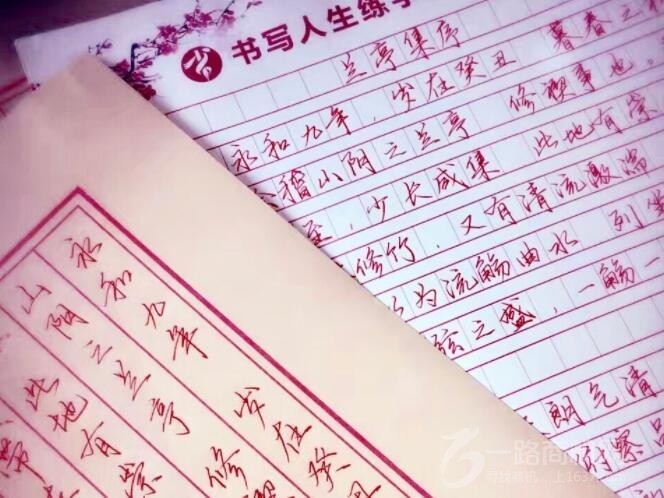 书写人生练字
兰亭集序
永和九年，岁在癸丑 暮春之
稽山阴之兰亭 修禊事也。
至，少长咸集 此地有崇
修竹，又有清流激湍
以为流觞曲水 列坐
弦之盛，一觞一
朗气清
察品
永和九年 岁在癸
山阴之兰亭 修禊
此地有崇
一路商机